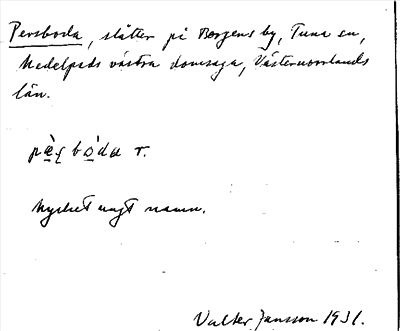 Persboda, slåtter på Bergens by, Tuna sn,
Medelpads västra domsaga, Västernorrlands
län.
pæ̀ʂbo̠da r.
Mycket ungt namn.
Valter Jansson 1931.